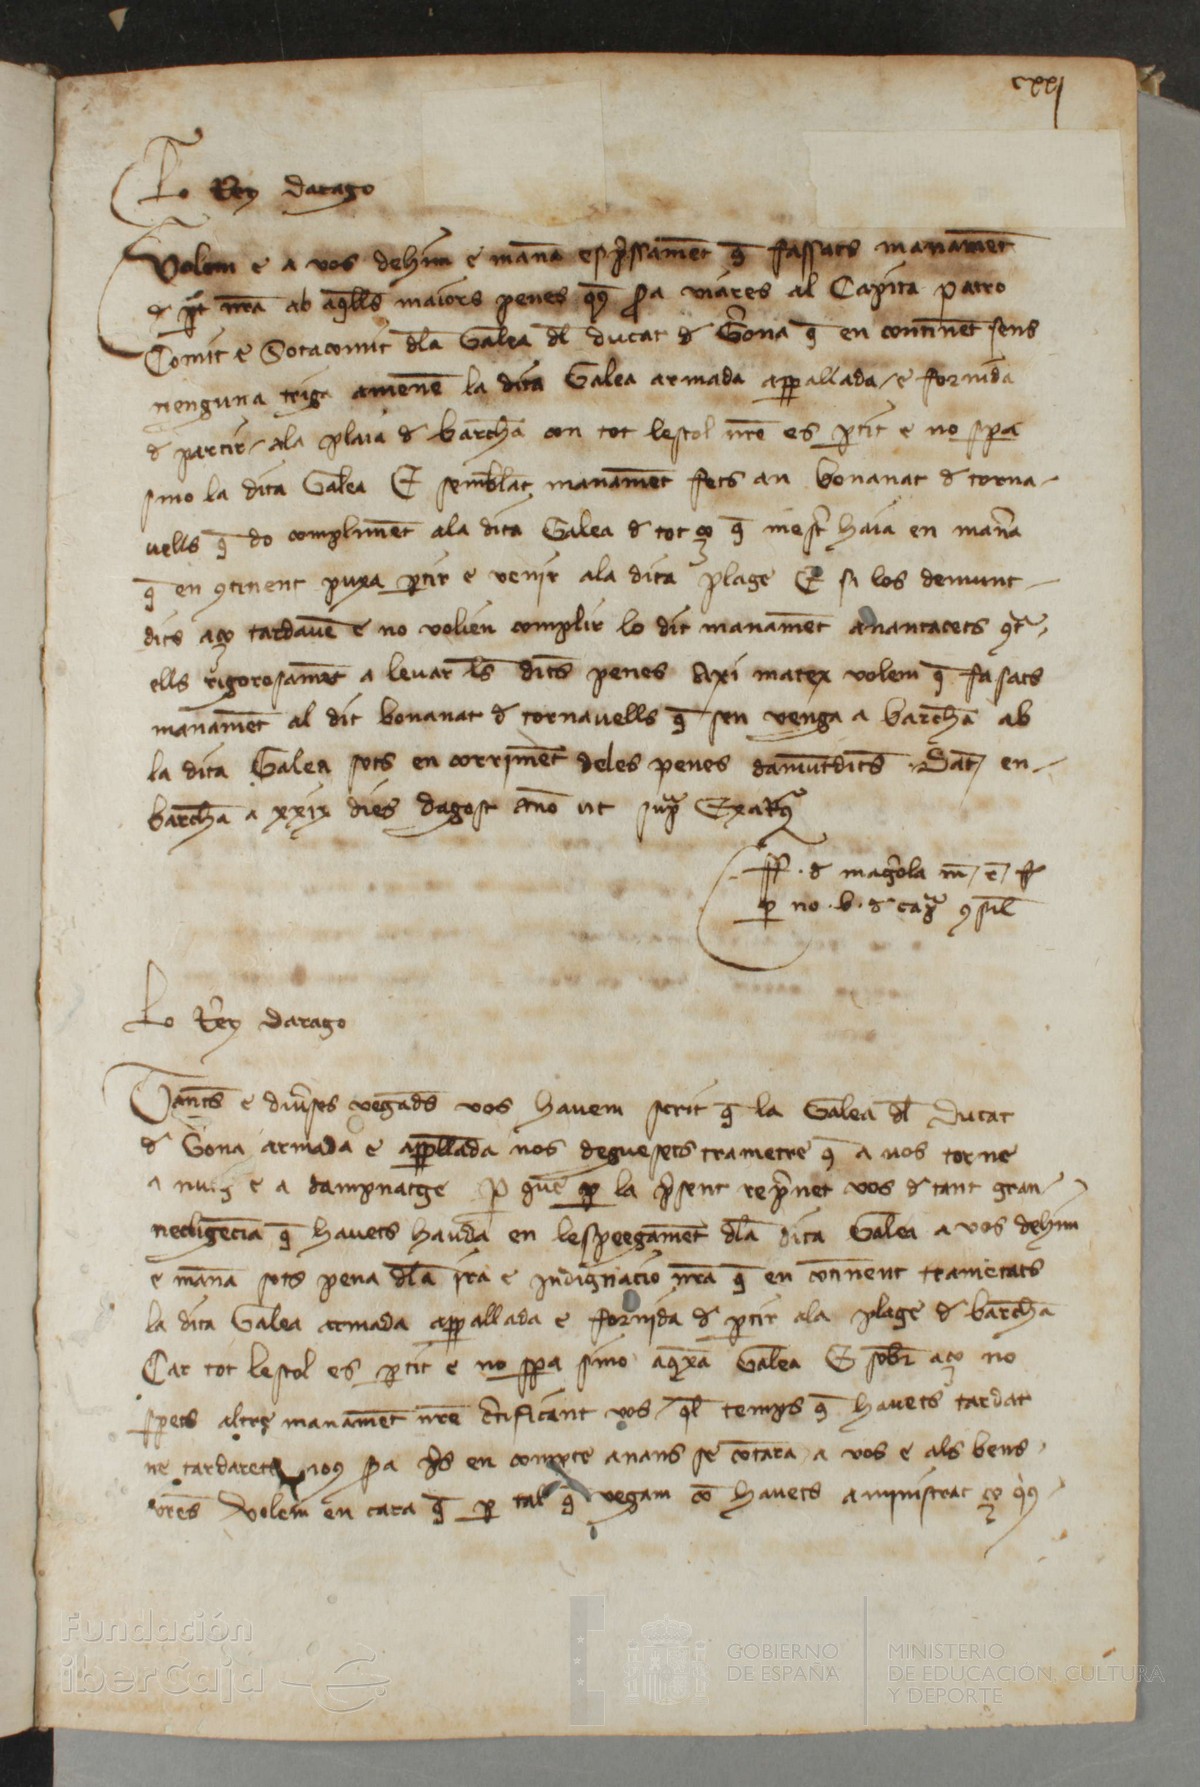 cxxj
Lo Rey darago
Volem e a vos dehim e mana espssament q fassats manament
d pt nra ab aqlls maiors penes qs pa viares al Capita patro
Comit e Sotacomit dla Galea dl ducat d Gona q en continet sens
nenguna triga amene la dita Galea armada appallada e fornida
d partir ala plaia d barchа con tot lestol nre es ptit e no spa
sino la dita Galea E semblat manament fets an bonanat d torna
uells q do compliment ala dita Galea d tot ço q mest haia en mana
q en 9tinent puxa ptir e venir ala dita plage E si los demunt
dits aço tardaue e no volien complir lo dit manament anantacets 9t
ells rigorosament a leuar ls dits penes Axi matex volem q fasats
manament al dit bonanat d tornauells q sen venga a barcha ab
la dita Galea sots en corriment deles penes damutdits Dat en
barcha a xxix dies dagost Ano ut sup
d magola
p no b d
Lo Rey darago
Tants e diuses vegads vos hauem scrit q la Galea dl Ducat
d Gona armada e appllada nos deguesets trametre q a uos torne
a e a dampnatge p que p la psent repnet vos d tant gran
necligecia q hauets hauda en lespeegament dla dita Galea a vos dehim
e mana sots pena dla ira e indignacio nra q en cotinent trametats
la dita Galea armada appallada e fornida d ptir ala plage d barcha
Car tot lestol es ptit e no spa sino aqxa Galea E sobr aço no
spets altre manament nre ctificant vos ql temps q hauets tardat
ne tardarets nos pa ps en compte anans se cotara a vos e als bens
vres Volem en cara q p tal q vegam co hauets aministrat ço qs
Fundación
iberCaja
GOBIERNO
DE ESPAÑA
MINISTERIO
DE EDUCACIÓN, CULTURA
Y DEPORTE